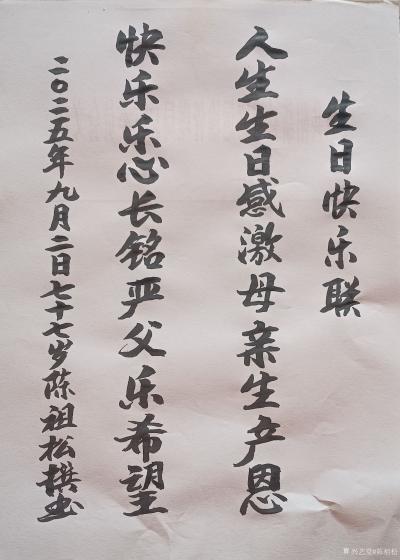 生日快乐联
人生生日感激母亲生产恩
快乐乐心长铭严父乐希望
二〇二五年九月二日七十七岁陈祖松撰书
兴艺堂#陈祖松